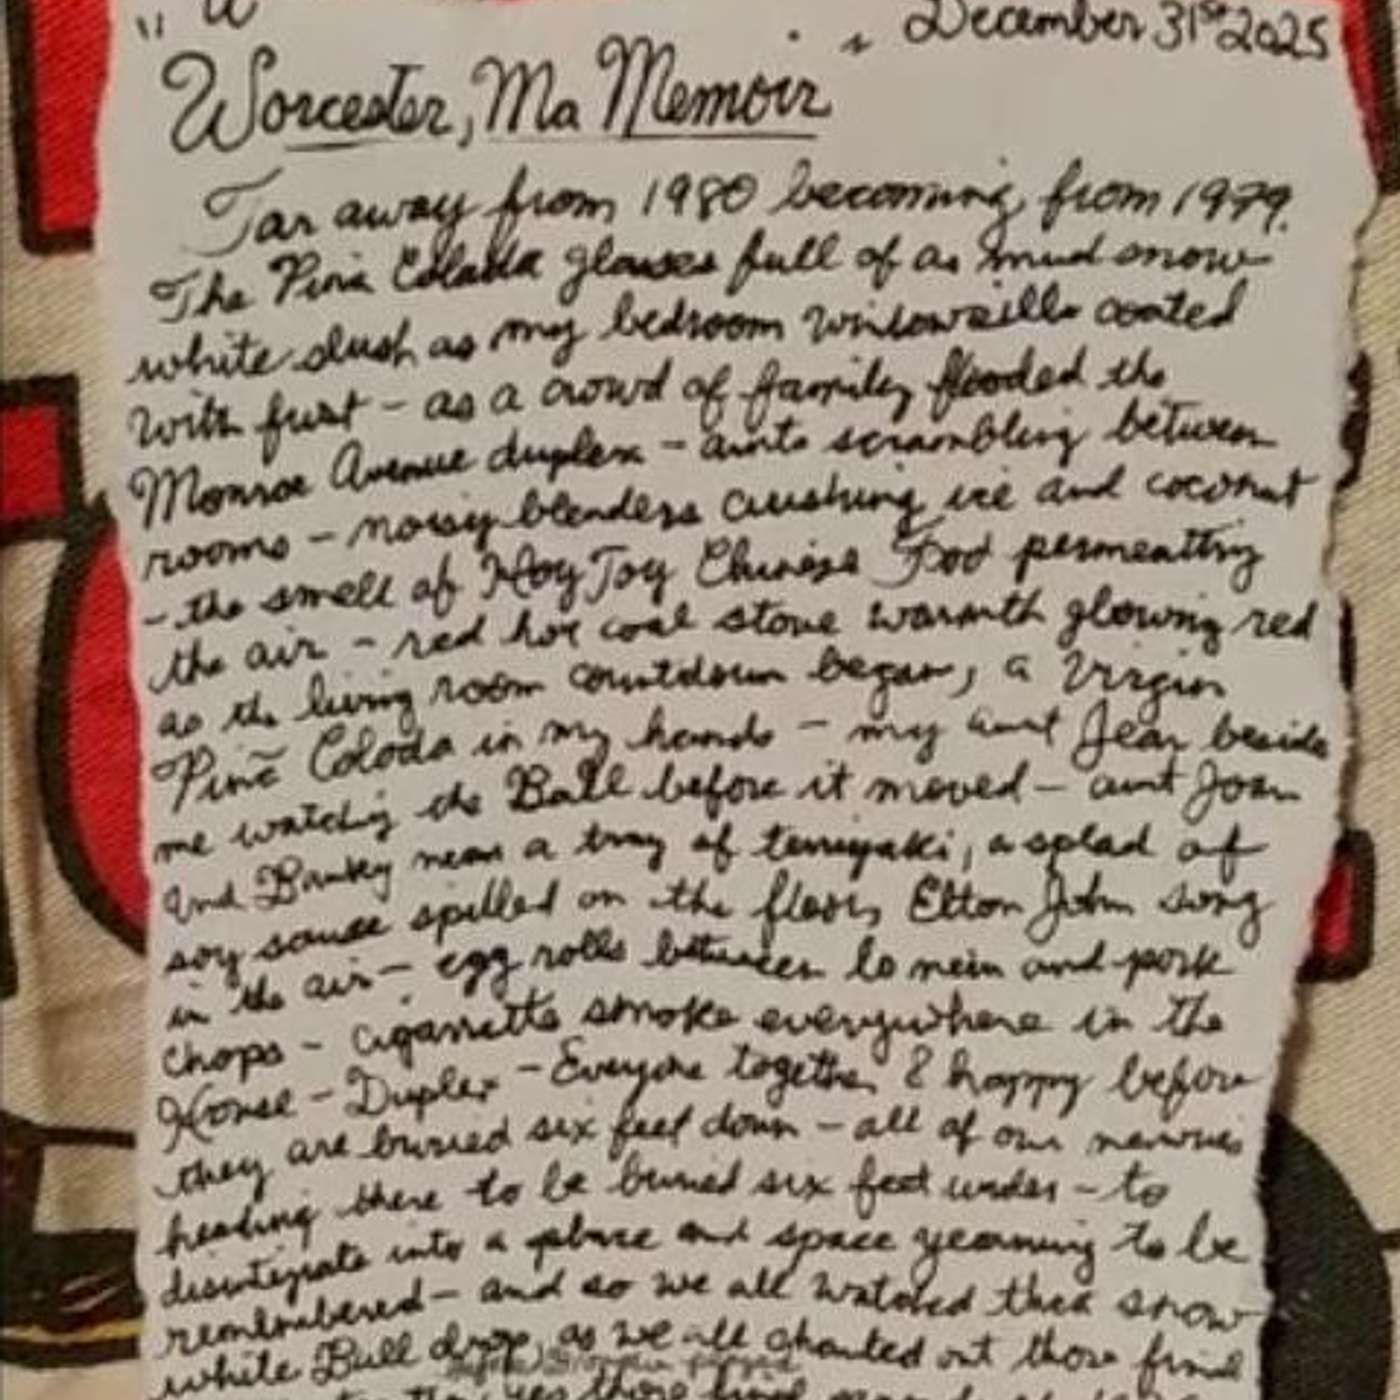 " a
December 31st 2025
Worcester, Ma Memoir "
Far away from 1980 becoming from 1979.
The Pina Colada glasses full of as mud snow
white slush as my bedroom windowsills coated
with frost - as a crowd of family flooded the
Monroe Avenue duplex - aunts scrambling between
rooms - noisy blenders crushing ice and coconut
- the smell of Hoy Toy Chinese Food permeating
the air - red hot coal stove warmth glowing red
as the living room countdown began, a Virgin
Piña Colada in my hands - my aunt Jean beside
me watching the Ball before it moved - aunt Joan
and near a tray of teriyaki, a splad of
soy sauce spilled on the floor, Elton John song
in the air - egg rolls between lo mein and pork
chops - cigarette smoke everywhere in the
House - Duplex - Everyone together & happy before
they are buried six feet down - all of our memories
heading there to be buried six feet under - to
disintegrate into a place and space yearning to be
remembered - and so we all watched that snow
white Ball drop, as we all chanted out those final
yes those final